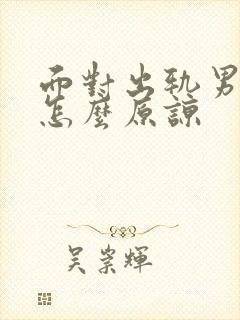 面對出軌男
怎麼原諒
吳崇輝